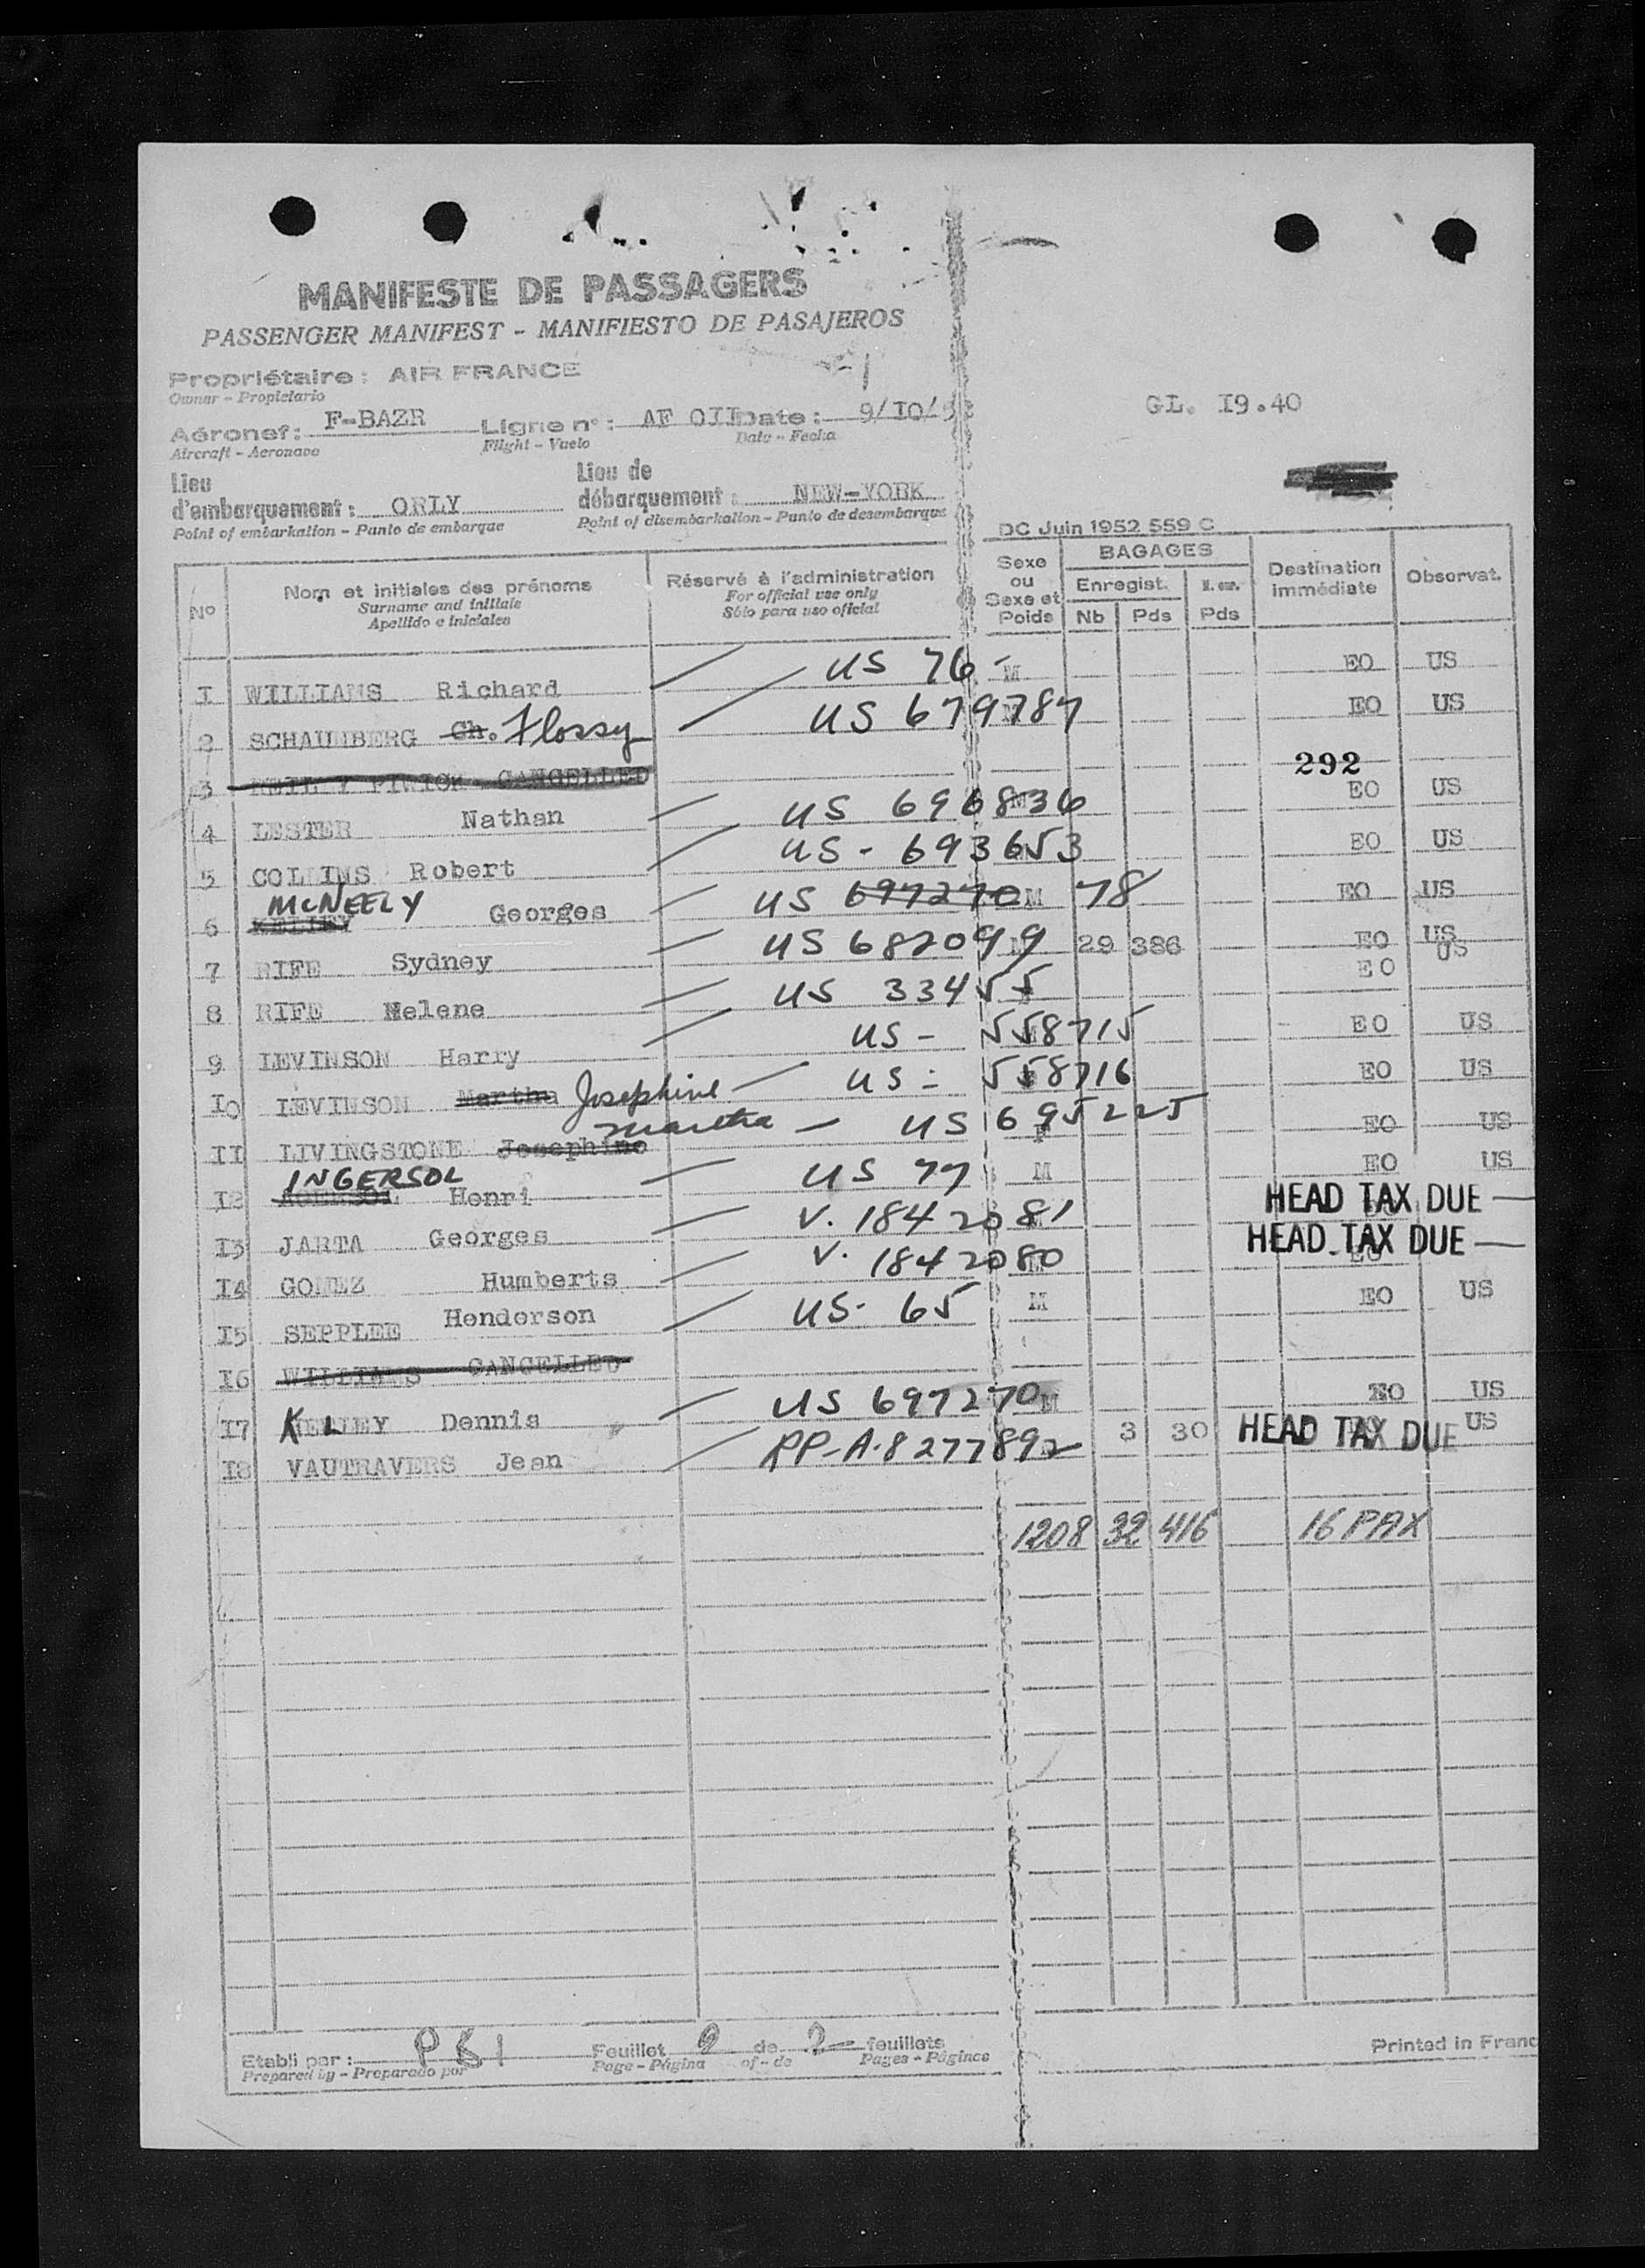 MANIFESTE DE PASSAGERS
PASSENGER MANIFEST - MANIFIESTO DE PASAJEROS
Propriétaire : AIR FRANCE
Owner - Propietario
GL. I9.40
Aéronef : F-BAZR Ligne n° : AF 0II Date : 9/I0/5
Aircraft - Aeronave Flight - Vuelo Date - Fecha
Lieu d'embarquement : ORLY Lieu de débarquement : NEW-YORK
Point of embarkation - Punto de embarque Point of disembarkation - Punto de desembarque
DC Juin 1952 559 C
N° Nom et initiales des prénoms Réservé à l'administration Sexe ou Sexe et Poids BAGAGES Destination immédiate Observat.
Surname and initials For official use only Enregist.
Apellido e iniciales Sólo para uso oficial Nb Pds Pds
I WILLIAMS Richard US 76 - M EO US
2 SCHAUMBERG Ch. Flossy US 679787 EO US
292
3 CANCELLED
4 LESTER Nathan US 696836 M EO US
5 COLLINS Robert US - 693653 EO US
6 KELLEY McNEELY Georges US 697270 78 M EO US
7 RIFE Sydney US 682099 29 386 EO US
8 RIFE Helene US 33455 EO US
9 LEVINSON Harry US - 558715 EO US
I0 LEVINSON Martha Josephine US - 558716 EO US
II LIVINGSTONE Josephine Martha - US 695225 F EO US
I2 INGERSOL Henri US 77 M EO US
I3 JARTA Georges V. 1842081 HEAD TAX DUE
I4 GOMEZ Humberts V. 1842080 HEAD TAX DUE
I5 SEPPLEE Henderson US - 65 M EO US
I6 WILLIAMS CANCELLED
I7 KELLEY Dennis US 697270 M EO US
I8 VAUTRAVERS Jean RP-A-8277892 3 30 HEAD TAX DUE US
1208 32 416 16 PAX
Etabli par : Feuillet 2 de 2 feuillets
Prepared by - Preparado por Page - Página of - de Pages - Páginas
Printed in Franc